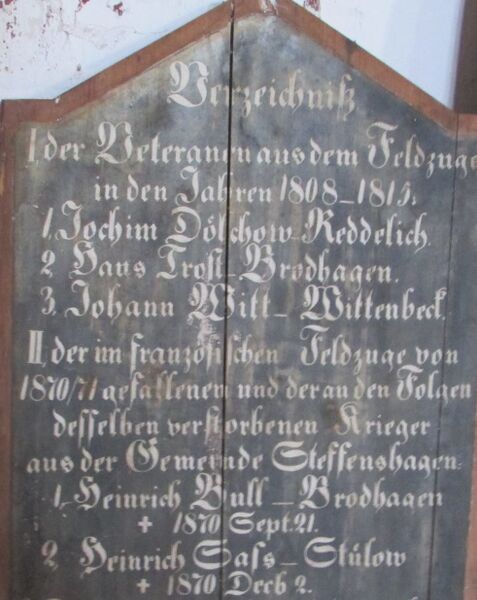 Verzeichniß
I, der Veteranen aus dem Feldzuge
in den Jahren 1808-1815.
1, Jochim Dölchow- Reddelich.
2, Hans Trost- Brodhagen.
3. Johann Witt- Wittenbeck.
II, der im französischen Feldzuge von
1870/71 gefallenen und der an den Folgen
desselben verstorbenen Krieger
aus der Gemeinde Steffenshagen:
1, Heinrich Bull- Brodhagen
+ 1870 Sept. 21.
2, Heinrich Sass- Stülow
+ 1870 Decb 2.